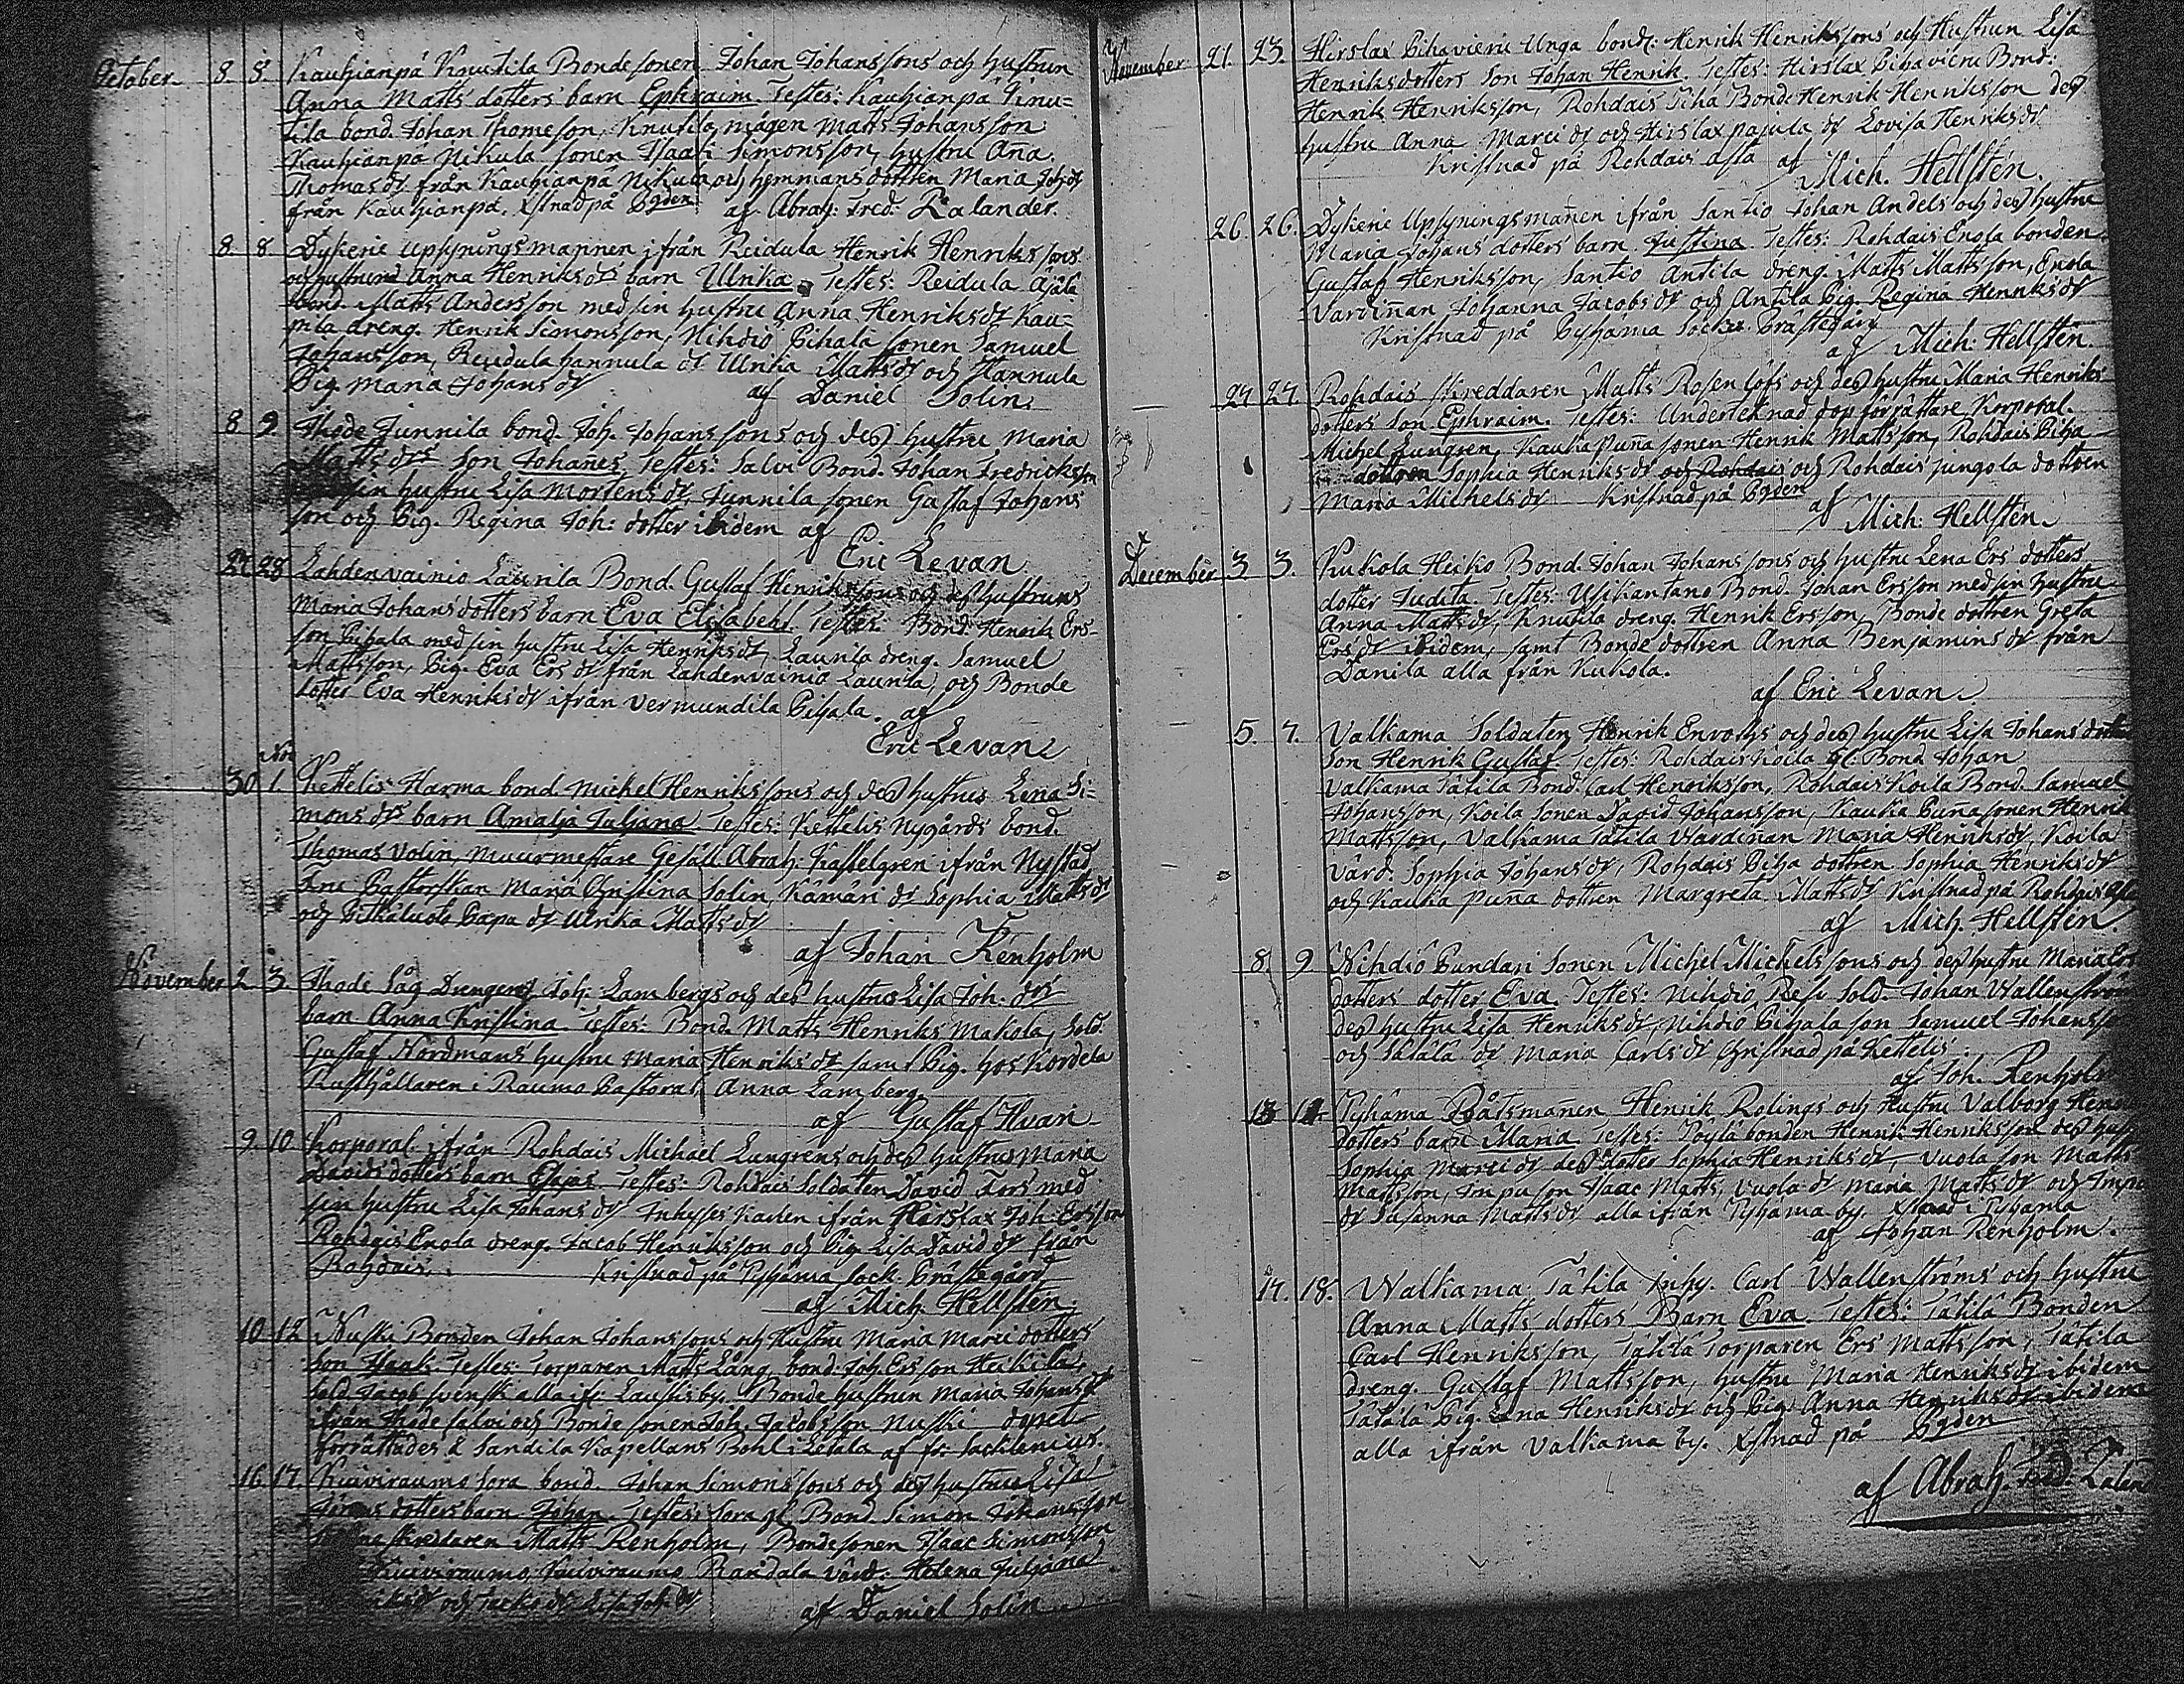 October 8. 8. Kauhianpä Knutila Bondesonen Johan Johanssons och hustrun
Anna Matts dotters barn Ephraim. Testes: Kauhianpä Knu=
tila bond. Johan Thomeson, Knutila mågen Matts Johansson
Kauhianpä Nikula sonen Isaak Simonsson, hustru Aña
Thomas dr från Kauhianpä Nikula och hemmans dottren Maria Joh dr
från Kauhianpä. Xstnad på Bÿden af Abrah: Fred: Lalander.
8. 8. Dykerie Upsyningsmannen ifrån Reidula Henrik Henrikssons
och hustruns Anna Henriks drs barn Ulrika. Testes: Reidula Äjälä
bond. Matts Andersson med sin hustru Anna Henriks dr Kau=
pila dreng. Henrik Simonsson, Nihdiö Pihala sonen Samuel
Johansson, Reidula Hannula dr Ulrika Matts dr och Hannula
Pig Maria Johans dr af Daniel Solin.
8 9. Ihode Junnila bond. Joh. Johanssons och des hustru Maria
Matts drs Son Johañes. Testes: Salvi Bond. Johan Fredricksson
sin hustru Lisa Mortens dr, Junnila sonen Gustaf Johans
son och Pig. Regina Joh: dotter ibidem af
Eric Levan
27 28 Lahdenvainio Launila Bond. Gustaf Henrikssons och des hustrus
Maria Johans dotters barn Eva Elisabeht. Testes: Bond. Henrik Ers-
son Pihala med sin hustru Lisa Henriks dr, Launila dreng. Samuel
Mattsson, Pig. Eva Ers dr från Lahdenvainio Launila, och Bonde
dotter Eva Henriks dr ifrån Vermundila Pihala. af
Eric Levan
Nov.
30 1. Kettelis Harma bond. Michel Henrikssons och des hustrus Lena Si=
mons drs barn Amalja Juljana. Testes: Kettelis Nygårds bond.
Thomas Volin, Muurmestare Gesäll Abrah: Kastelgren ifrån Nystad
Fru Pastorskan Maria Christina Solin, Kämäri dr Sophia Matts dr
och Pitkäluoto Papa dr Ulrika Matts dr
af Johan Renholm
November 2 3. Ihode Såg Drengens Joh: Lambergs och des hustrus Lisa Joh: drs
barn Anna Kristina. Testes: Bond. Matts Henriks Mahola, Sold.
Gustaf Nordmans hustru Maria Henriks dr samt Pig. hos Kordela
Rusthållaren i Raumo Pastorat, Anna Lamberg.
af Gustaf Hvari
9. 10 Korporal. ifrån Rohdais Michael Lungrens och des hustrus Maria
Davids dotters barn Elsjas. Testes: Rohdais Soldaten David Fors med
sin hustru Lisa Johans dr Inhyses Karlen ifrån Hirslax Joh. Ersson
Rohdais Enola dreng. Jacob Henriksson och Pig Lisa David dr från
Rohdais. Kristnad på Pyhäma Sock. Prästegård
af Mich. Hellstén.
10 12 Nuski Bonden Johan Johanssons och Hustru Maria Marci dotters
Son Isaak. Testes: Torparen Matts Lång, bond. Joh. Ersson Heikilä,
Sold. Jacob Svensk alla ifr. Lausis by. Bonde hustrun Maria Johans dr
ifrån Ihode Salvi och Bonde sonen Joh. Jacobsson Nuski dopet
förrättades å Sandila Kapellans Bohl i Letala af fr. Sacklenius.
16 17. Kuiviraumo Sora bond. Johan Simonssons och des hustrus Lisa
dotters barn Johan. Testes: Sora gl. Bond. Simon Johansson
Skreddaren Matts Renholm, Bondesonen Isaac Simonsson
Kuiviraumo, Kuiviraumo Randala värd: Helena Juljana
och dr Lisa Joh. dr af Daniel Solin
November 21. 23. Hirslax Pihavieru Unga bond: Henrik Henrikssons och Hustrun Lisa
Henriksdotters Son Johan Henrik. Testes: Hirslax Pihavieru Bond:
Henrik Henriksson, Rohdais Piha Bond: Henrik Henriksson des
hustru Anna Marci dr och Hirslax pajula dr Lovisa Henriks dr
Kristnad på Rohdais af
Mich. Hellstén.
26. 26. Dykerie Upsyningsmañen ifrån Santio Johan Andels och des hustru
Maria Johans dotters barn Justina. Testes: Rohdais Enola bonden
Gustaf Henriksson, Santio Antila dreng. Matts Mattsson, Enola
Vardiñan Johanna Jacobs dr och Antila Pig. Regina Henriks dr
Kristnad på Pyhama Socke Prästegård
af Mich. Hellstén.
27 27. Rohdais Skreddaren Matts Rosenlöfs och des hustru Maria Henriks
dotters Son Ephraim. Testes: Underteknad dopförrättare, Korporal.
Michel Lungren, Kauka Puña sonen Henrik Mattsson, Rohdais Piha
dottren Sophia Henriks dr och Rohdais och Rohdais jungola dottren
Maria Michels dr Kristnad på Bÿden
af Mich: Hellstén
December 3 3. Kukola Heiko Bond. Johan Johanssons och hustru Lena Ers dotters
dotter Judita. Testes: Usikartano Bond. Johan Ersson med sin hustru
Anna Matts dr, Knutila dreng. Henrik Ersson, Bonde dottren Greta
Ers dr ibidem, samt Bonde dottren Anna Benjamins dr från
Danila alla från Kukola.
af Eric Levan
5. 7. Valkama Soldaten Henrik Envolds och des hustru Lisa Johans dotters
Son Henrik Gustaf. Testes: Rohdais Koila gl. Bond Johan
Valkama Tätilä Bond. Carl Henriksson, Rohdais Koila Bond. Samuel
Johansson, Koila Sonen David Johansson, Kauka Puña sonen Henrik
Mattsson, Valkama Tätilä Vardiñan Maria Henriks dr, Koila
värd. Sophia Johans dr, Rohdais Piha dottren Sophia Henriks dr
och Kauka Puña dottren Margreta Matts dr Kristnad på Rohdais
af Mich. Hellstén.
8. 9 Nihdiö Pundari Sonen Michel Michelssons och des hustru Maria
dotters dotter Eva. Testes: Nihdiö Resu Sold. Johan Wallenström
des hustru Lisa Henriks dr, Nihdiö Pihala son Samuel Johansson
och Sätälä dr Maria Carls dr Christnad på Kettelis
af Joh. Renholm
13 14. Pyhäma Båtsmañen Henrik Rolings och Hustru Valborg
dotters barn Maria. Testes: Pöylä bonden Henrik Henriksson des
Sophia Marci dr des dotter Sophia Henriks dr, Vuola son Matts
Mattsson, Impu son Isaac Matts, Vuola dr Maria Matts dr och Impu
dr Susanna Matts dr alla ifrån Pyhäma by. Xstnad i Pyhama
af Johan Renholm.
17. 18. Walkama Tätilä Inhy. Carl Wallenströms och hustru
Anna Matts dotters Barn Eva. Testes: Tätilä Bonden
Carl Henriksson, Tätilä Torparen Ers Mattsson, Tätila
dreng. Gustaf Mattsson, hustru Maria Henriks dr ibidem
Tätälä Pig. Lena Henriks dr och Pig Anna Henriks dr ibidem
alla ifrån Valkama by. Xstnad på Bÿden
af Abrah. Fred